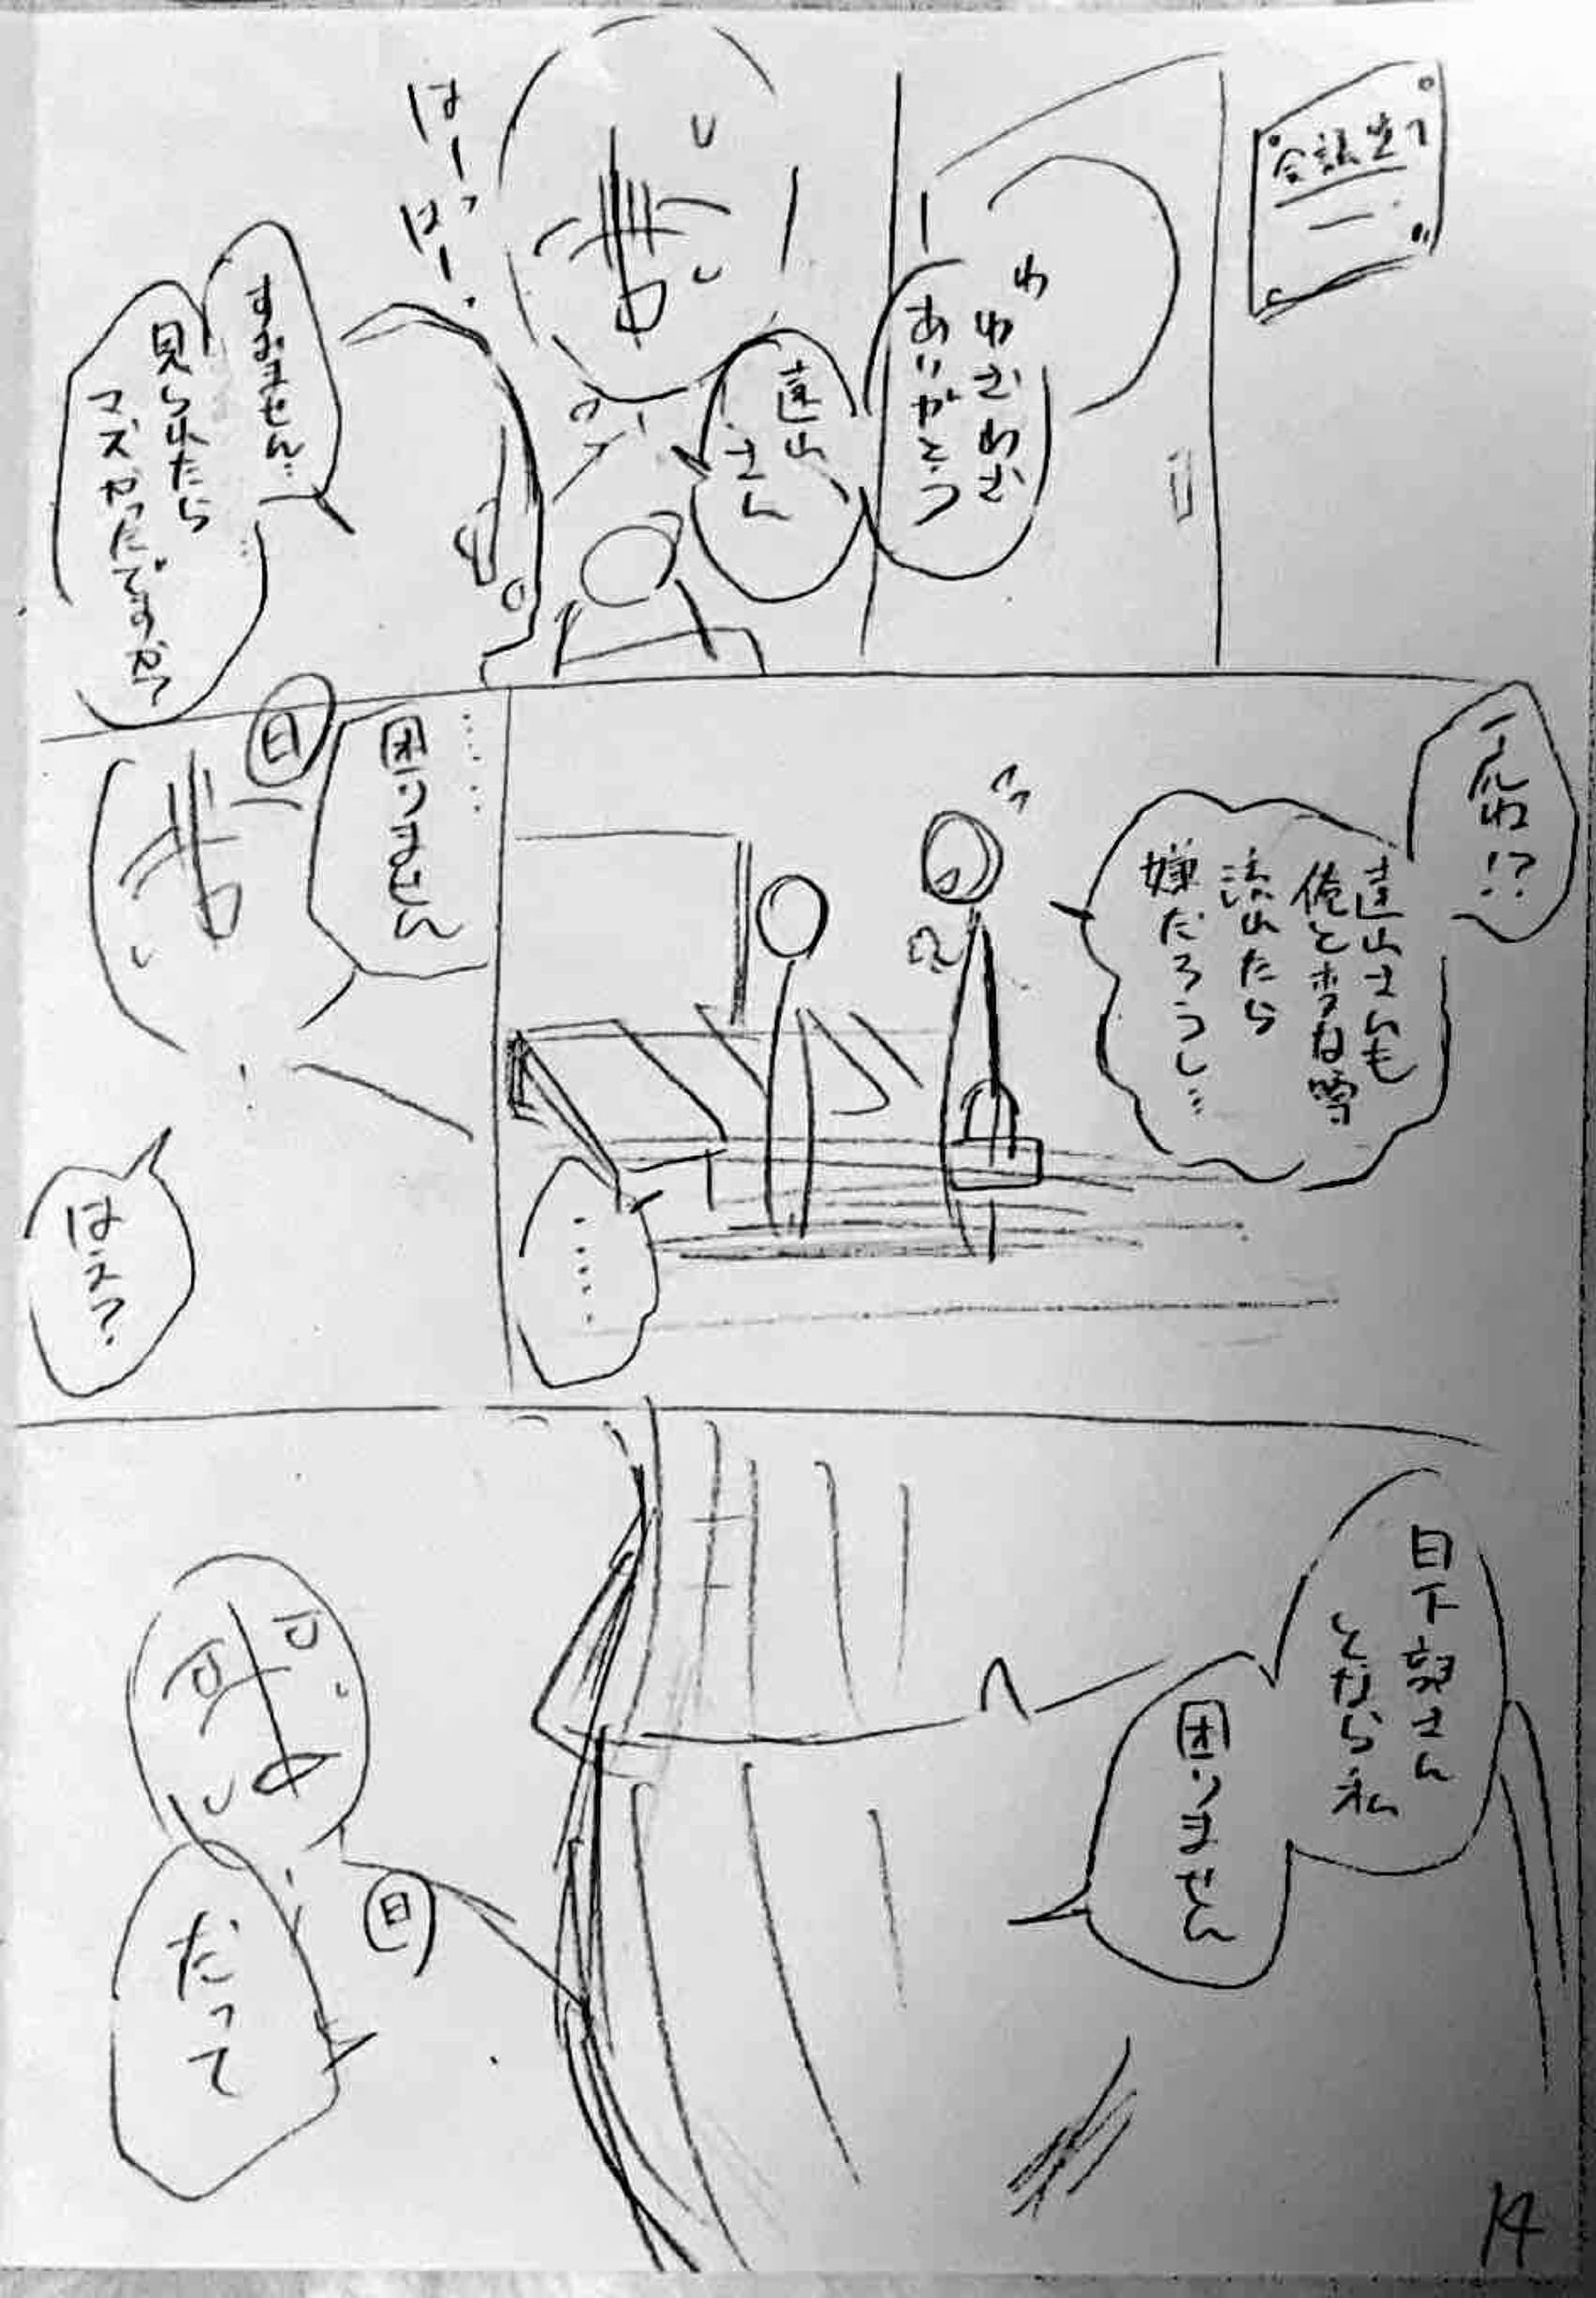 わ
わざわざ
ありがとう
遠山
さん
はーっ
はー
すみません…
見られたら
マズかったですか?
え!?
遠山さんも
俺と変な噂
流れたら
嫌だろうし…
……
……
困りません
日
はえ?
日下部さん
となら私
困りません
日
だって
14